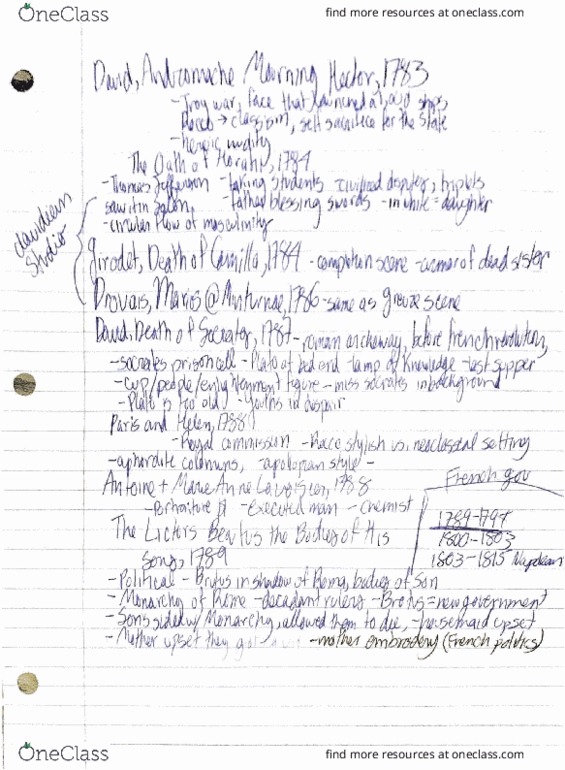 OneClass
find more resources at oneclass.com
David, Andromache Mourning Hector, 1783
- Troy war, face that launched a 1,000 ships
Rococo → classism, self sacrifice for the state
- heroic nudity
The Oath of Horatii, 1784
- Thomas Jefferson - taking students civilized disputes, triplets
saw it in salon, - father blessing swords - in white - daughter
- circular flow of masculinity
davidian studio
Girodet, Death of Camilla, 1784 - competition scene - woman of dead sister
Drovais, Marios @ Minturnae, 1786 - same as greuze scene
David, Death of Socrates, 1787 - roman archaway, before french revolution,
- socrates prison cell - Plato at bed end - lamp of knowledge - last supper
- cup/people/enlightenment figure - miss socrates in background
- Plato is too old - youths in despair
Paris and Helen, 1788
- Royal commission - Roco stylish vs. neoclassical setting
- aphrodite columns, - apologian style -
Antoine + Marie Anne Lavoisier, 1788
- Portraiture - executed man - chemist
French gov
1789-1799
1800-1803
1803-1815 Napoleon
The Lictors the Bodies of His
Sons, 1789
- Political - Brutus in shadow of Roma, bodies of Son
- Monarchy of Rome - decadant rulers - Brutus = new government
- Sons sided w/ Monarchy, allowed them to die, - housemaid upset
- Mother upset they - mother embroidery (French politics)
OneClass
find more resources at oneclass.com